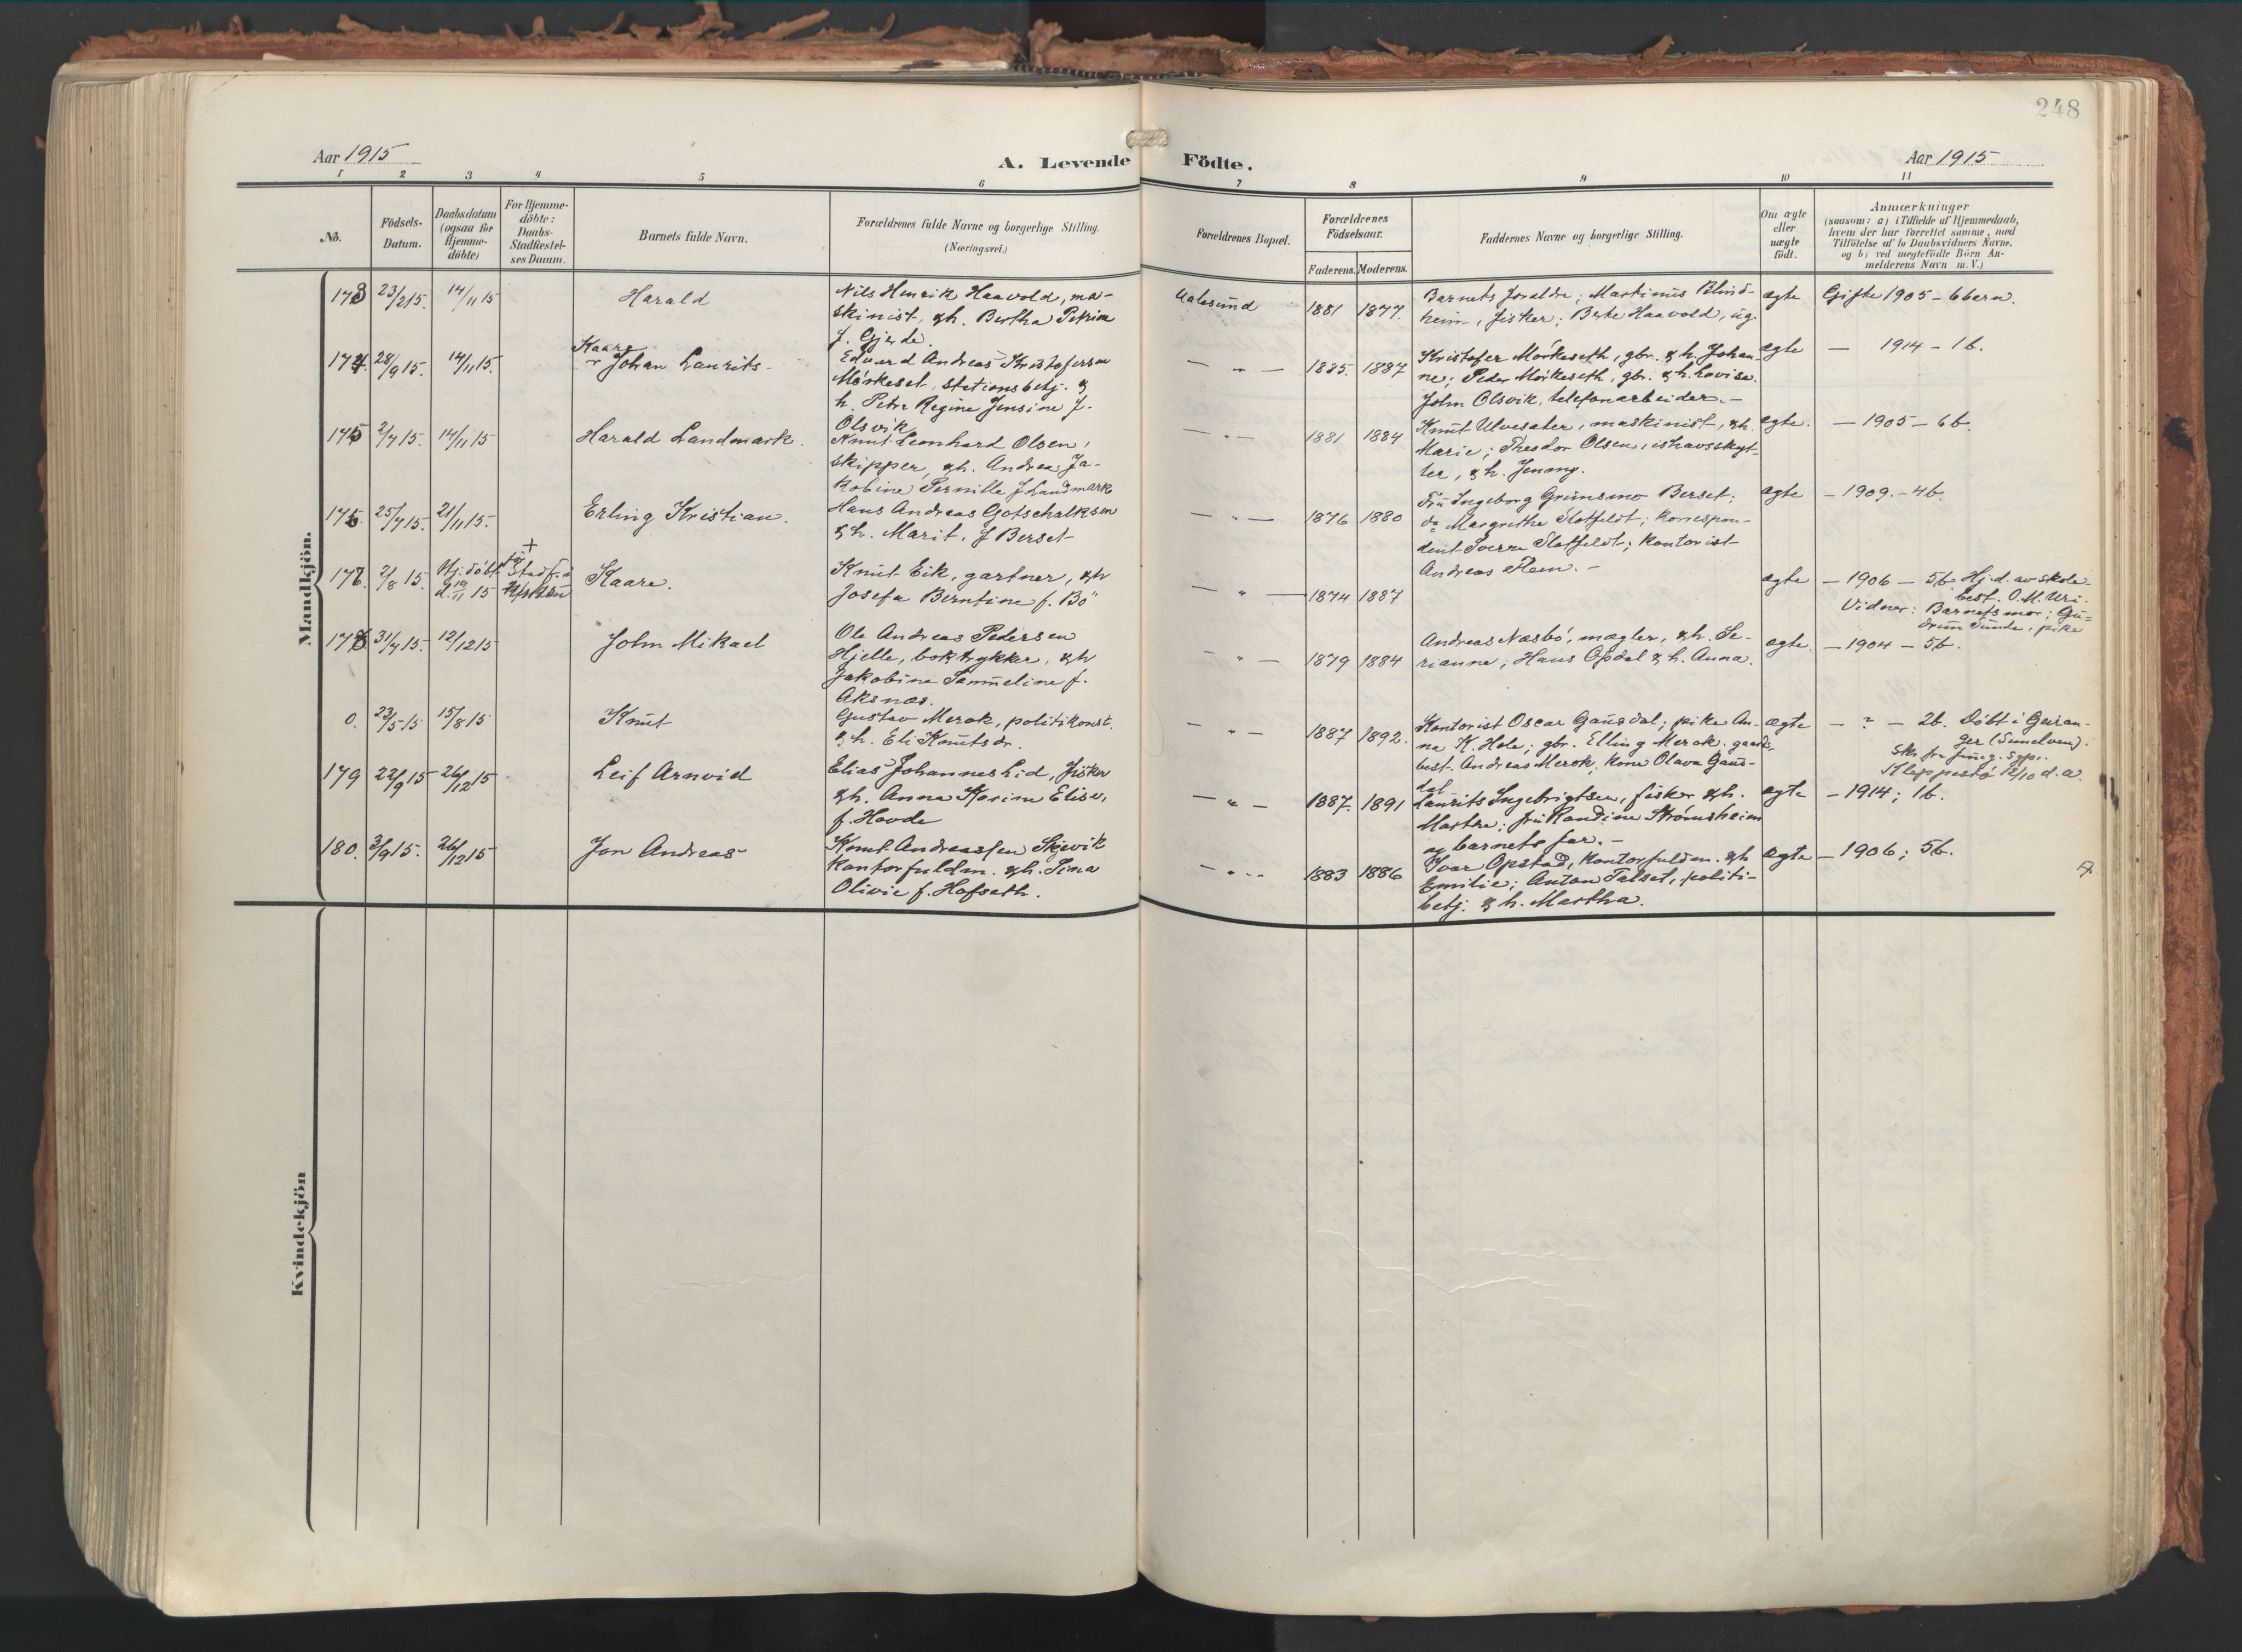 248
Aar 1915
A. Levende Födte.
Aar 1915
1 2 3 4 5 6 7 8 9 10 11
No.
Födsels-Datum.
Daabsdatum (ogsaa for Hjemme-döbte)
For Hjemme-döbte: Daabs-Stadfæstel-ses Datum.
Barnets fulde Navn.
Forældrenes fulde Navne og borgerlige Stilling. (Næringsvei.)
Forældrenes Bopæl.
Forældrenes Födselsaar.
Faderens. Moderens.
Faddernes Navne og borgerlige Stilling.
Om ægte eller uægte födt.
Anmærkninger
(saasom: a) i Tilfælde af Hjemmedaab,
hvem der har forrettet samme, med
Tilföielse af to Daabsvidners Navne.
og b) ved uægtefödte Börn An-
melderens Navn m.V.)
Mandkjön.
173 23/2 15. 14/11 15 Harald
Nils Henrik Haavold, ma-
skinist, & h. Bertha Petrine
f. Gjerde.
Aalesund 1881 1877.
Barnets foraldre; Martinus Blind-
heim, fisker; Berte Haavold, ug.
ægte Gifte 1905 - 6 barn.
174. 28/9 15. 14/11 15. Kaare
Johan Laurits
Edvard Andreas Kristofersen
Mörkeset, stationsbetj. &
h. Petra Regine Jensine f.
Olsvik
— „ — 1885. 1887
Kristofer Mörkeseth, gbr. & h. Johan-
ne; Peder Mörkeseth, gbr. & h. Lovise.
John Olsvik, telefonarbeider. -
ægte — 1914 - 1 b.
175 2/7 15. 14/11 15 Harald Landmark.
Knut Leonhard Olsen,
skipper, & h. Andrea Ja-
kobine Pernille f Landmark
— „ — 1881 1884
Knut Ulvesæter, maskinist, & h.
Marie; Theodor Olsen, ishavsskyt-
ter, & h. Jenny.
ægte. — 1905 - 6 b.
176. 25/7 15. 21/11 15. Erling Kristian.
Hans Andreas Gotschalksen
& h. Marit, f Berset
— „ — 1876 1880
Fru Ingeborg Grimsmo Berset;
do Margrethe Slotfeldt; korrespon-
dent Sverre Slotfeldt; kontorist
Andreas Flem. -
ægte — 1909. - 4 b.
177. 2/8 15. Hj. döbt
d. 19/11 15 Kaare.
Knut Eik, gartner, & h
Josefa Berntine f. Bö
— „ — 1874 1887
ægte — 1906 - 5 b Hj. d. av skole-
best. O. M. Uri.
Vidner: Barnets mor; Gu-
drun Sunde, pike
178 31/7 15. 12/12 15 John Mikael
Ole Andreas Pedersen
Hjelle, boktrykker, & h
Jakobine Samueline f.
Aksnæs.
— „ — 1879 1884
Andreas Næsbö, mægler, & h. Se-
rianne; Hans Opdal & h. Anna.
ægte. — 1904 - 5 b.
0. 23/5 15 15/8 15 Knut
Gustav Merok, politikonst.
& h. Eli Knutsdr.
— „ — 1887 1892.
Kontorist Oscar Gausdal; pike An-
na K. Hole; gbr. Elling Merok. gaard-
best. Andreas Merok; kone Olava Gaus-
dal
ægte — ? — 2 b. Döbt i Geiran-
ger (Sunelven).
Kleppestö 12/10 d. a.
179 22/9 15 26/12 15 Leif Arnvid
Elias Johannes Lid, fisker
& h. Anna Karine Elise,
f. Hovde
— „ — 1887. 1891
Laurits Ingebrigtsen, fisker & h.
Marthe; fru Randine Strömsheim
og barnets far. -
ægte — 1914; 1 b.
180. 3/9 15. 26/12 15 Jon Andreas
Knut Andreassen Skjevik
kontorfuldm. & h. Tina
Olivie f. Hofseth.
— „ — 1883 1886
Ivar Opstad, kontorfuldm. & h
Emilie; Anton Talset, politi-
betj. & h. Martha.
ægte — 1906; 5 b.
Kvindekjön